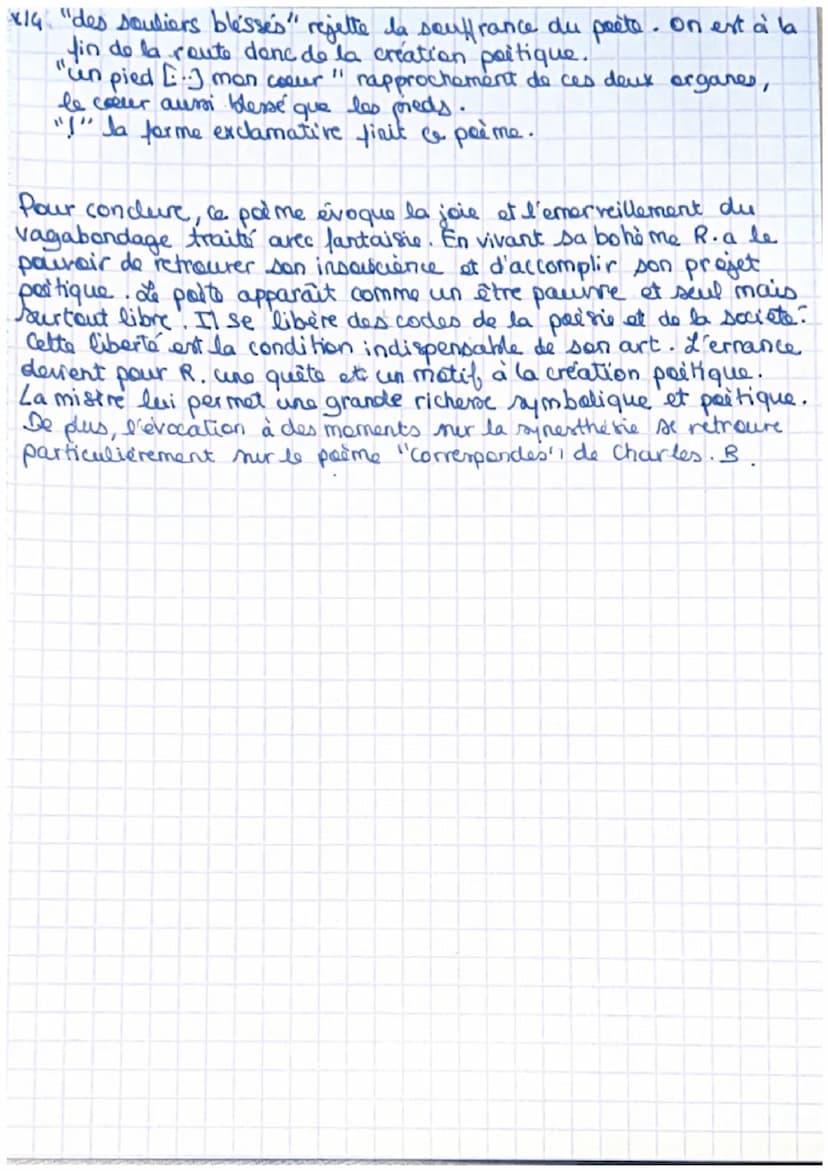 v14. "des souliers blessés" rejette la souffrance du poète. On est à la
fin de la route donc de la création poétique.
"un pied [...] mon coeur" rapprochement de ces deux organes,
le coeur aussi blessé que les pieds.
"!" la forme exclamative finit ce poème.
Pour conclure, ce poème évoque la joie et l'émerveillement du
vagabondage traité avec fantaisie. En vivant sa bohème R. a le
pouvoir de retrouver son insouscience et d'accomplir son projet
poétique. Le poète apparaît comme un être pauvre et seul mais
surtout libre. Il se libère des codes de la poésie et de la société.
Cette liberté est la condition indispensable de son art. L'errance
devient pour R. une quête et un motif à la création poétique.
La misère lui permet une grande richesse symbolique et poétique.
De plus, l'évocation à des moments sur la synesthésie se retrouve
particulièrement sur le poème "Correspondes" de Charles. B.